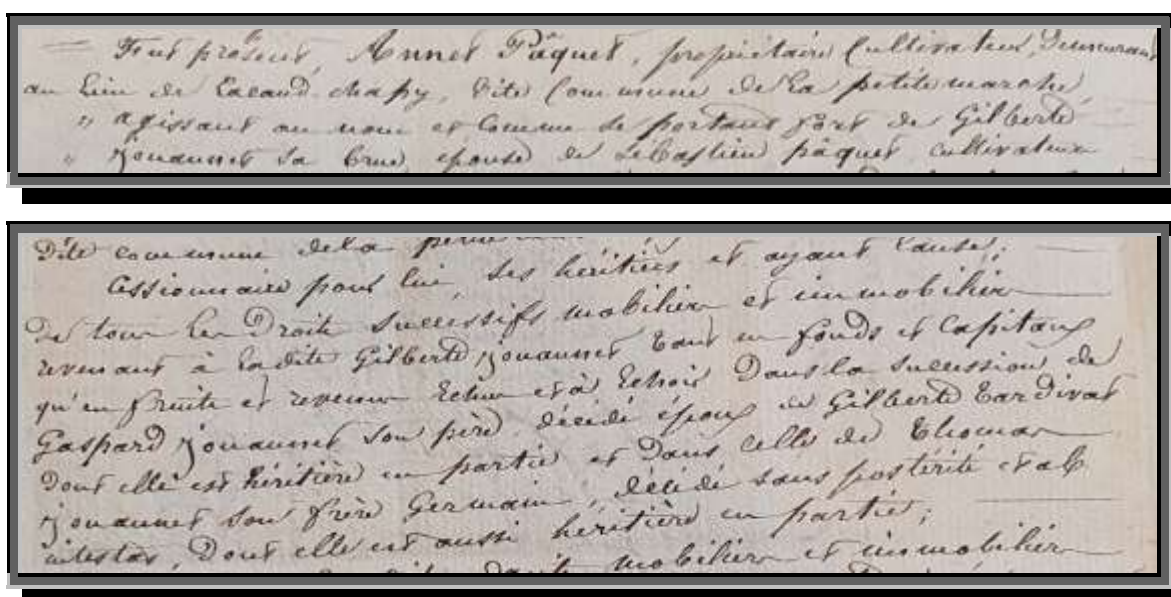 Fut présent, Annet Pâquet, propriétaire Cultivateur, Demeurant
au Lieu de Lacaud-chapy, dite Commune de La petite marche,
" agissant au nom et Comme se portant fort de Gilberte
" jouannet sa brue, épouse de Sébastien pâquet cultivateur
Dite commune dela
Cessionnaire pour lui, ses héritiers et ayant Cause,
De tous Les Droits successifs mobilier et immobilier
revenant à Ladite Gilberte jouannet tant en fonds et Capitaux
qu'en fruits et revenus Echus et à Echoir Dans la succession de
Gaspard jouannet son père, décédé époux de Gilberte Tardivat
Dont elle est héritière en partie et Dans celle de Thomas
jouannet son frère Germain, décédé sans postérité et ab
intestat, Dont elle est aussi héritière en partie;
mobilier et immobilier